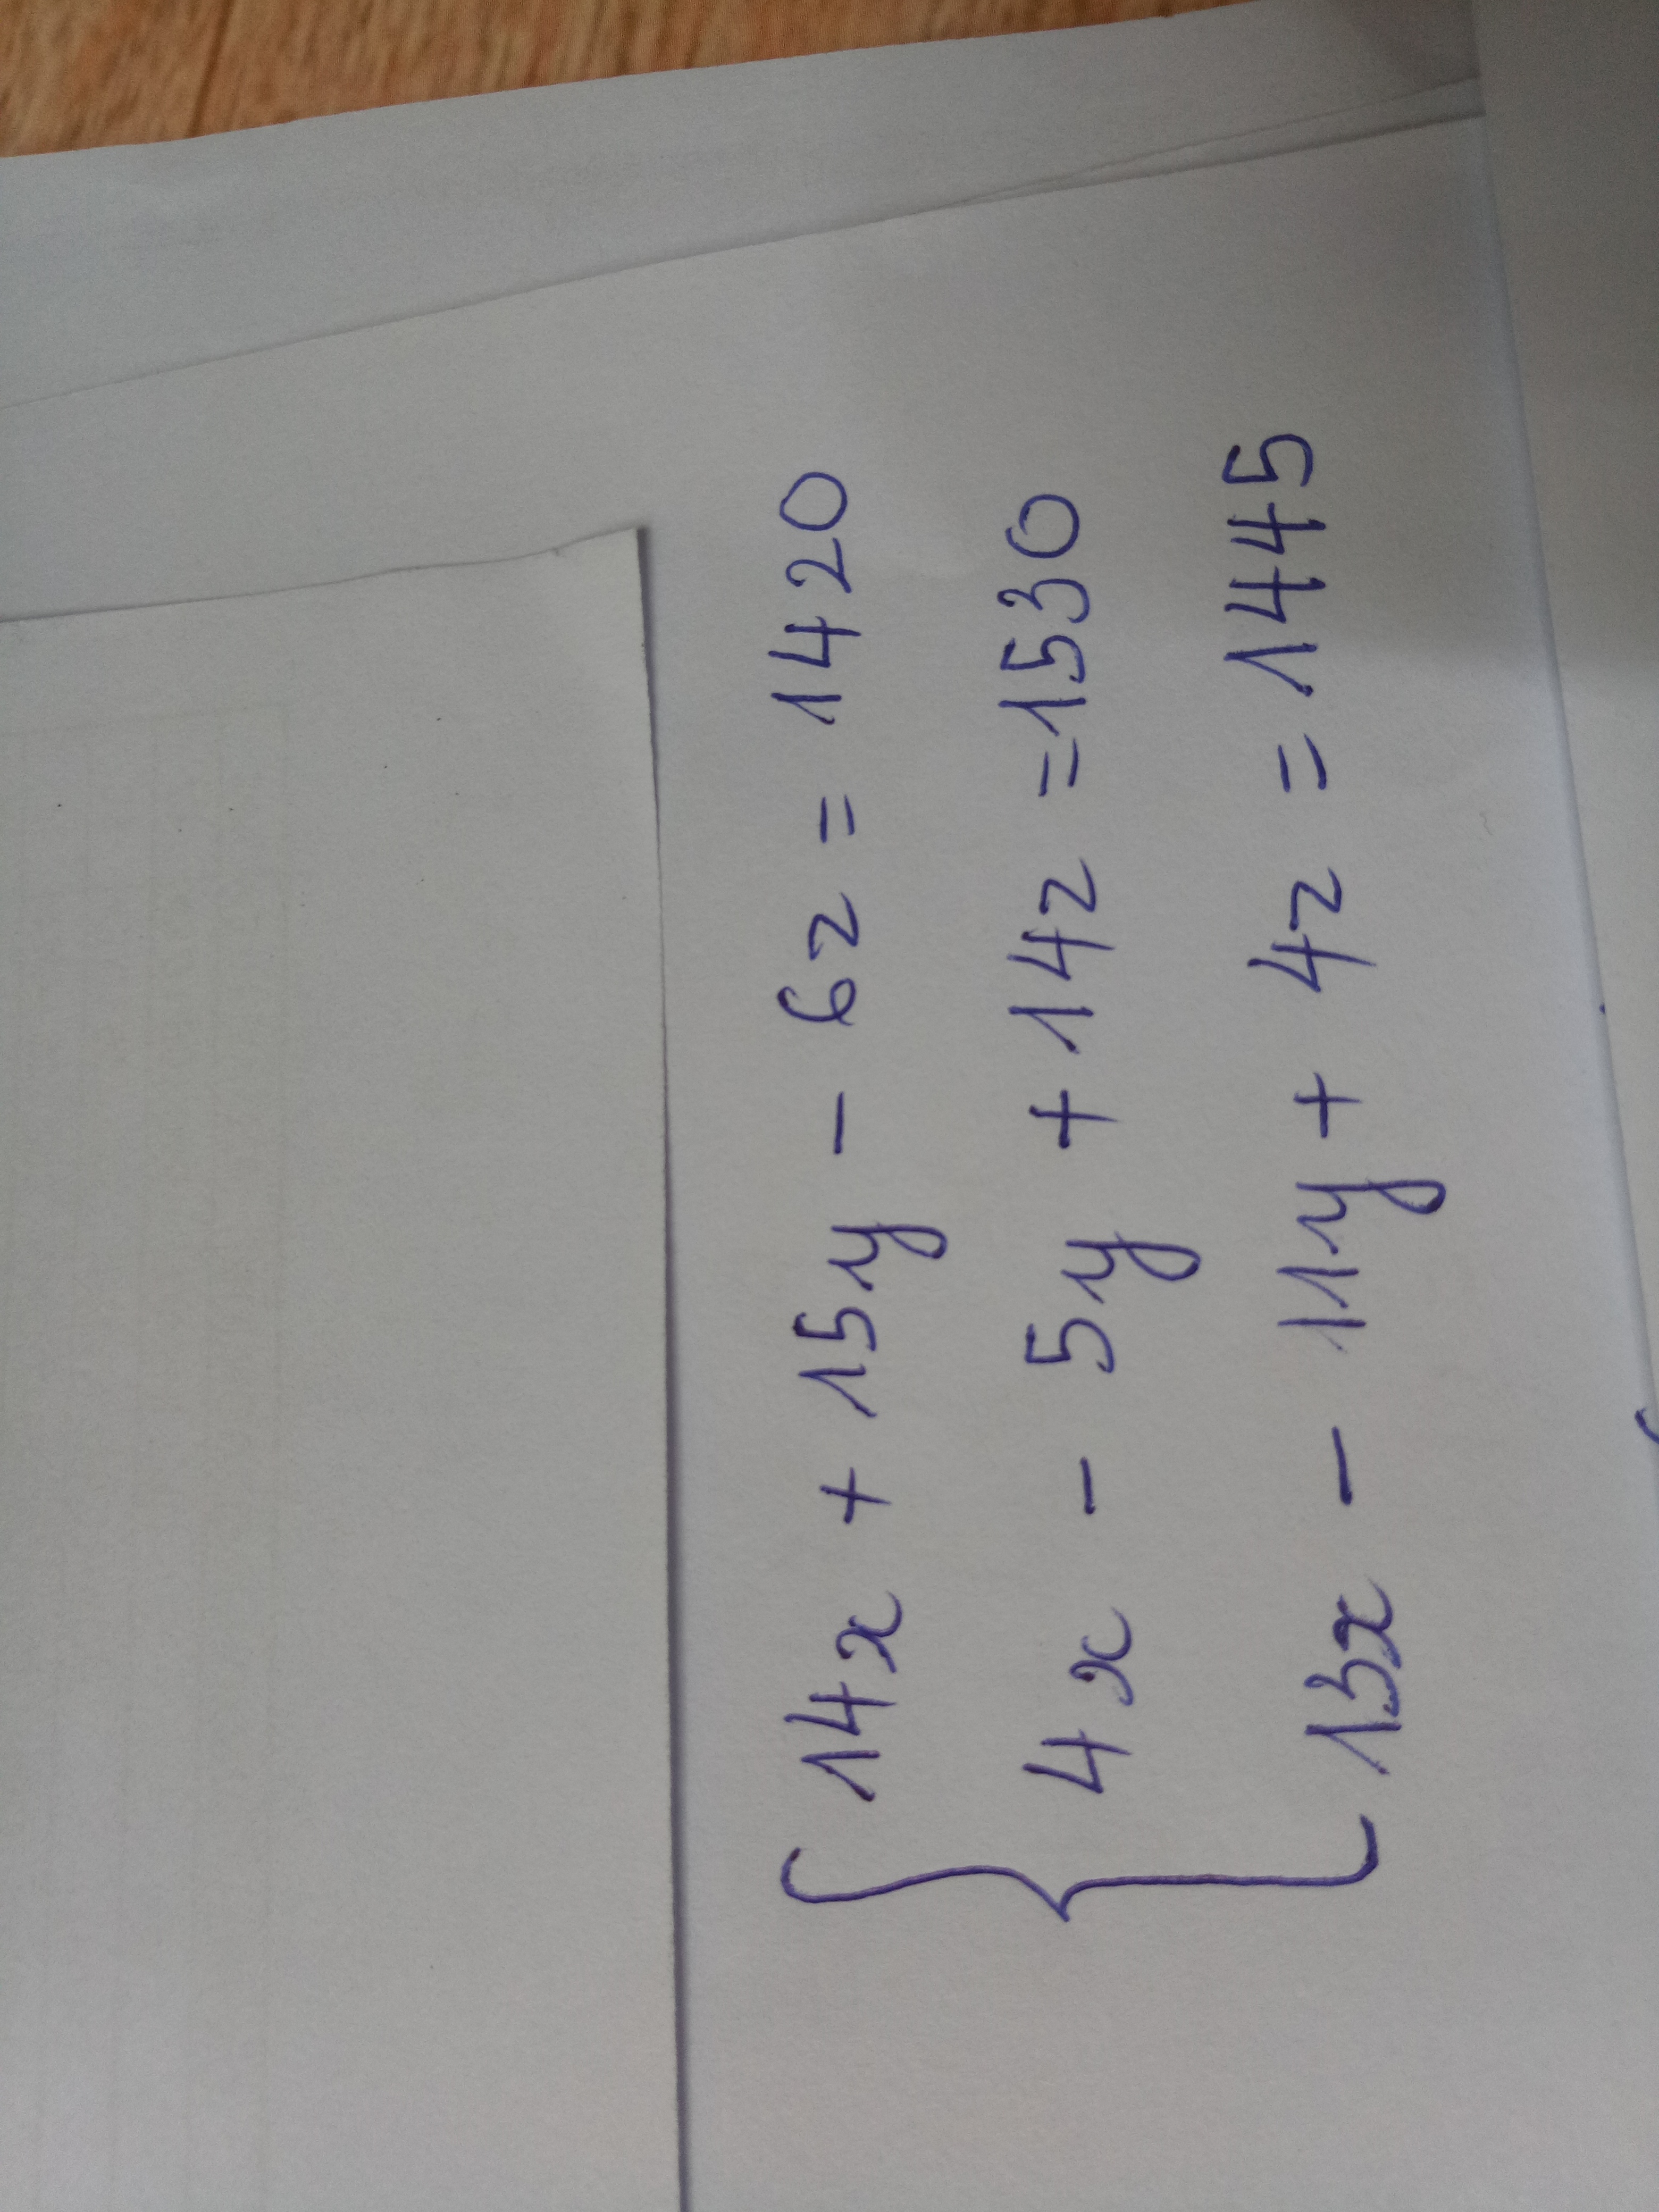 14x + 15y - 6z = 1420
4x - 5y + 14z = 1530
13x - 11y + 4z = 1445